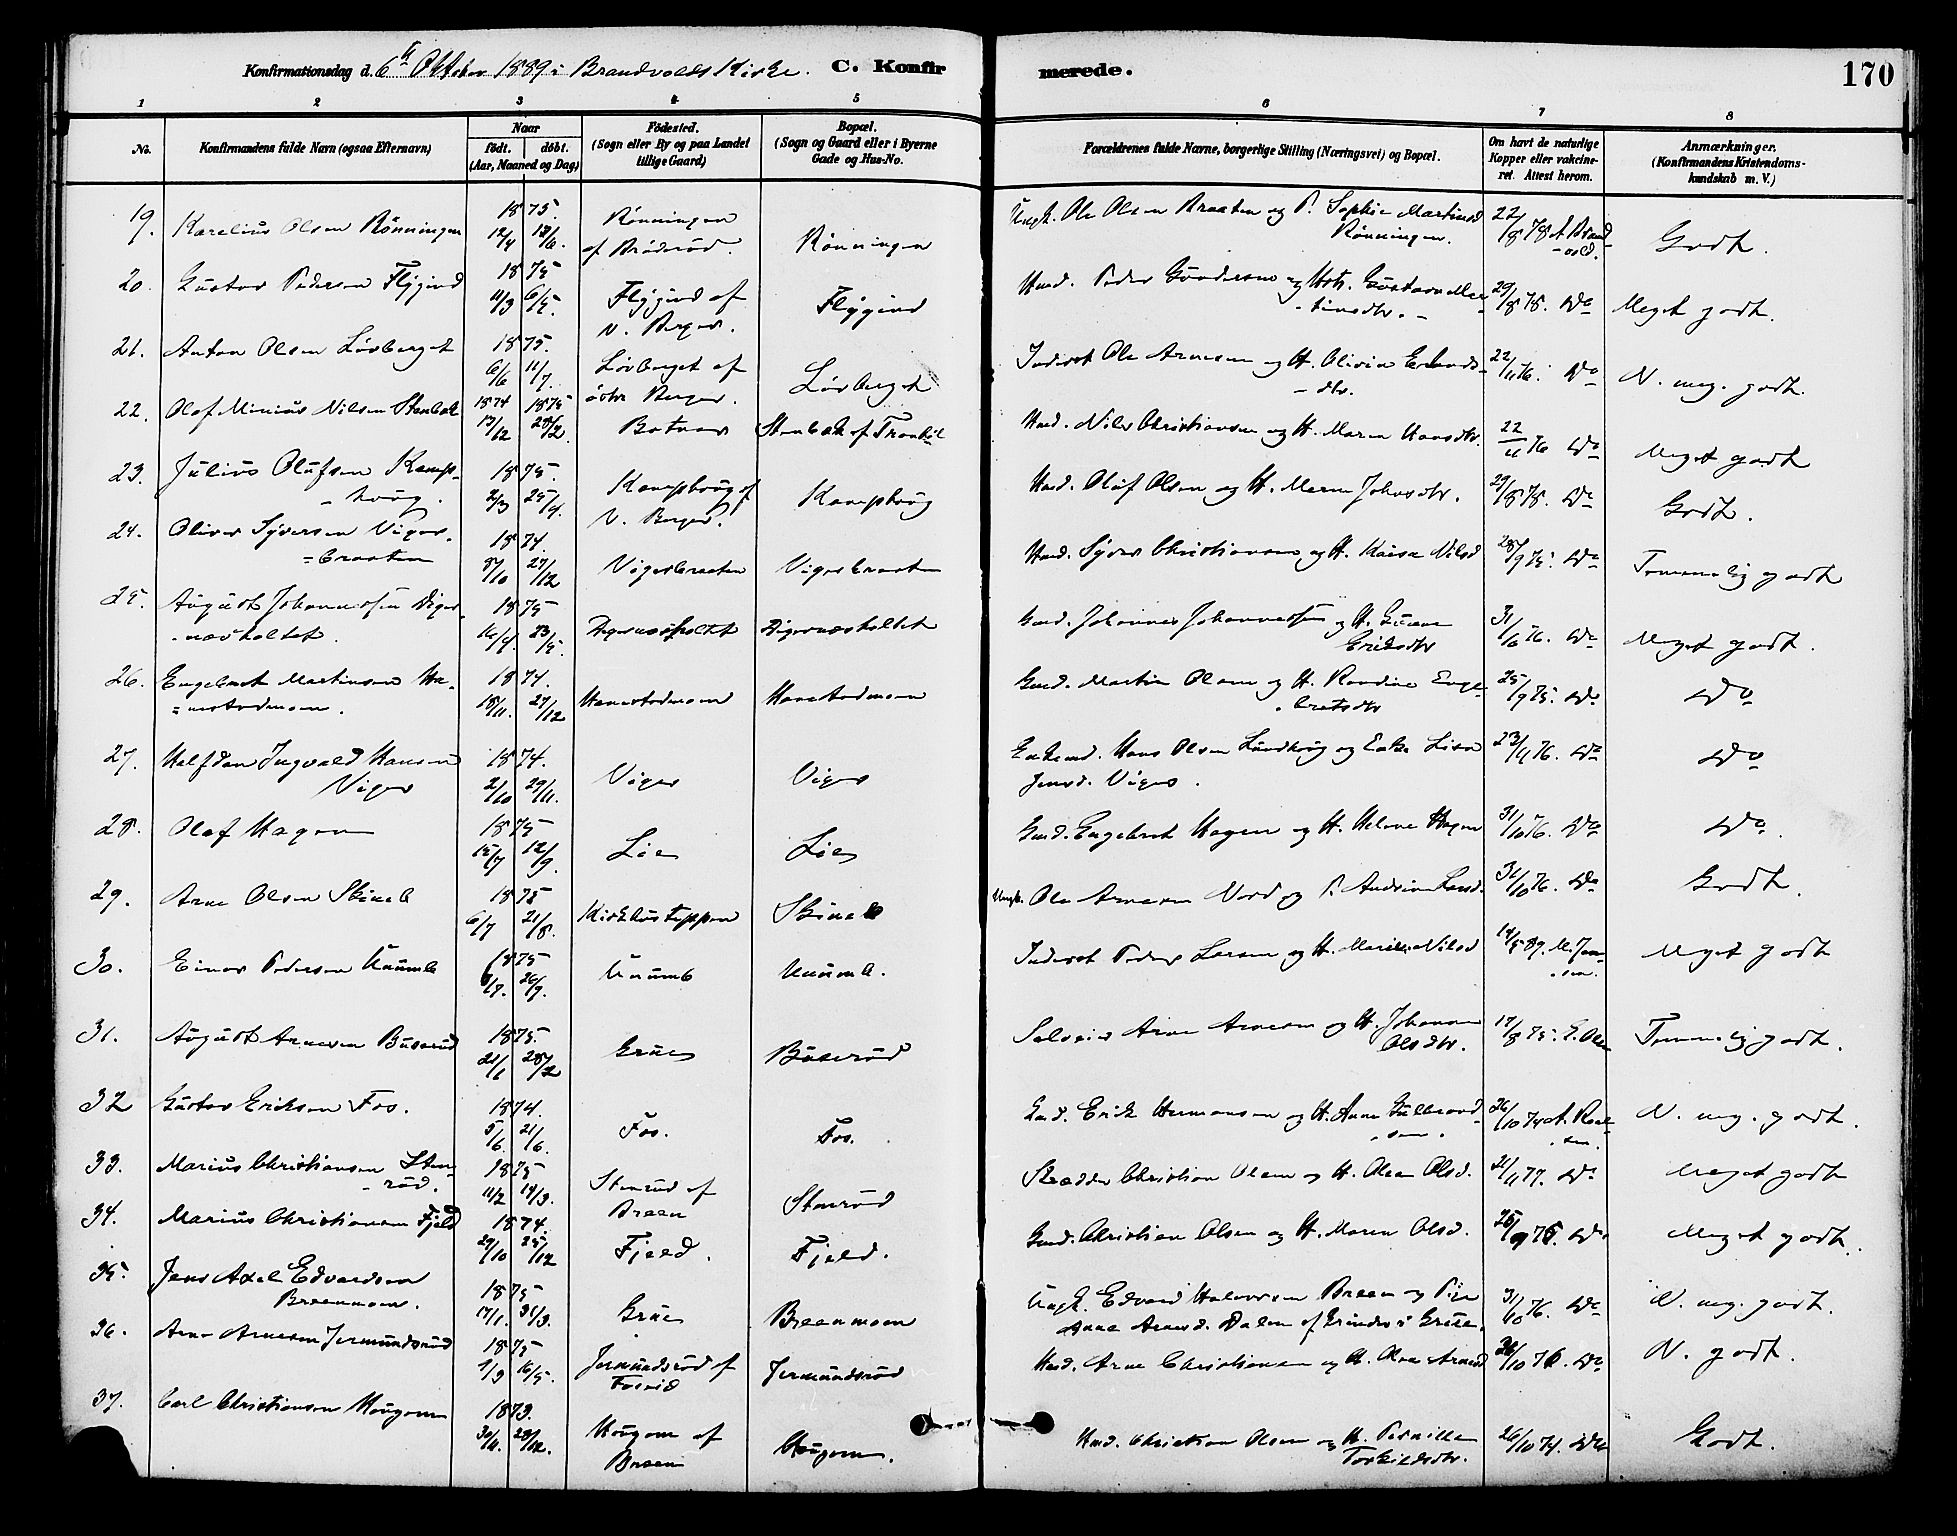 Konfirmationsdag d. 6te Oktober 1889 i Brandvolds Kirke. C. Konfirmerede. 170
1 2 3 4 5 6 7 8
No. Konfirmandens fulde Navn (ogsaa Efternavn) Naar født. døbt. (Aar, Maaned og Dag) Fødested. (Sogn eller By og paa Landet tillige Gaard) Bopæl. (Sogn og Gaard eller i Byerne Gade og Hus-No. Forældrenes fulde Navne, borgerlige Stilling (Næringsvei) og Bopæl. Om havt de naturlige Kopper eller vakcineret. Attest herom. Anmærkninger. (Konfirmandens Kristendomskundskab m. V.)
19. Karelius Olsen Rønningen 1875. 12/4 13/6. Rønningen af Brødrød. Rønningen Ungk. Ole Olsen Braaten og P. Sophie Martinsd Rønningen. 22/8 78 A. Brandvold. Godt.
20. Gustav Pedersen Flygind 1875 11/3 6/5. Flygind af N. Berger. Flygind Husmd. Peder Gundersen og Hstr. Gustava Martinsdtr. 29/8 78. Do Meget godt.
21. Anton Olsen Løvberget 1875. 6/6 11/7. Løvberget af østre Berger. Løvberget Inderst Ole Arnesen og H. Olivia Erlandsdtr. 22/11 76. Do N. meg. godt.
22. Olaf Minius Nilsen Stenbæk 1874 13/12 1875 28/2. Botner Stenbæk af Tronbøl Husmd. Nils Christiansen og H. Maren Hansdtr. 22/11 76 Do Meget godt
23. Julius Olufsen Kamphoug. 1875. 2/3 25/4. Kamphoug af N. Berger. Kamphoug Husmd. Oluf Olsen og H. Maren Johnsdtr. 29/8 78. Do Godt.
24. Oliver Syversen Vigersbraaten 1874. 8/10 27/12 Vigersbraaten Vigersbraaten Husmd. Syver Christiansen og H. Kaisa Nilsd 28/9 75. Do Temmelig godt
25. August Johannessen Digernæsholtet. 1875 16/4. 23/5. Digernæsholtet Digernæsholtet Gmd. Johannes Johannessen og H. Eriksdtr 31/10 76. Do Meget godt.
26. Engebret Martinsen Hanestadmoen. 1874. 18/11. 27/12 Hanestadmoen Hanestadmoen Gmd. Martin Olsen og H. Randine Engebretsdtr 25/9 75. Do Do
27. Halfdan Ingvald Hansen Viger 1874. 2/10 29/11. Viger Viger Enkemd. Hans Olsen Lundhoug og Enke Lisa Jensd. Viger. 23/11 76. Do Do
28. Olaf Hagen 1875 15/7 12/9. Lier Lier Gmd. Engebret Hagen og H. Helene Hagen 31/10 76. Do Do.
29. Arne Olsen Skineb 1875 6/7 21/8. Kirkhusteppen Skineb Ungk. Ole Arnesen Nord og P. Andrine Larsd. 31/10 76. Do Godt.
30. Einar Pedersen Uaumb 1875 8/8. 26/9. Uaumb Uaumb. Inderst Peder Larsen og H. Marthe Nilsd 14/5 89. M. Jensen. Meget godt
31. August Arnesen Buserud 1875. 21/1 28/2 Grue Buserud Selveier Arne Arnesen og H. Johanne Olsdtr. 17/8 75. E. Olsen Temmelig godt.
32 Gustav Eriksen Fos. 1874. 5/6. 21/6. Fos. Fos. Gmd. Erik Hermansen og H. Anne Gulbrandsen. 26/10 74 N. meg. godt.
33. Marius Christiansen Stenrud. 1875 11/2 14/3. Stenrud af Breen Stenrud Skrædder Christian Olsen og H. Olea Olsd. 21/11 77. Do Meget godt
34. Marius Christiansen Fjeld 1874. 29/10 25/12 Fjeld. Fjeld. Gmd. Christian Olsen og H. Maren Olsd. 25/9 75. Do Meget godt.
35. Jens Axel Edvardsen Breenmoen. 1875 17/1. 31/3. Grue Breenmoen Ungk. Edvard Halvorsen Breen og Pige Anne Arnesd. Dalen af Grinder i Grue. 31/10 76. Do N. meg. godt.
36. Arne Arnesen Jermundsrud 1875 9/3 16/5. Jermundsrud af Fosvid Jermundsrud Husmd. Arne Christiansen og H. Olea Arnesd 26/10 76. Do N. godt.
37. Carl Christiansen Haugom 1873. 30/11. 28/12. Haugom af Breen Haugom. Husmd. Christian Olsen og H. Pernille Torkildsdtr. 26/10 74. Do Godt.